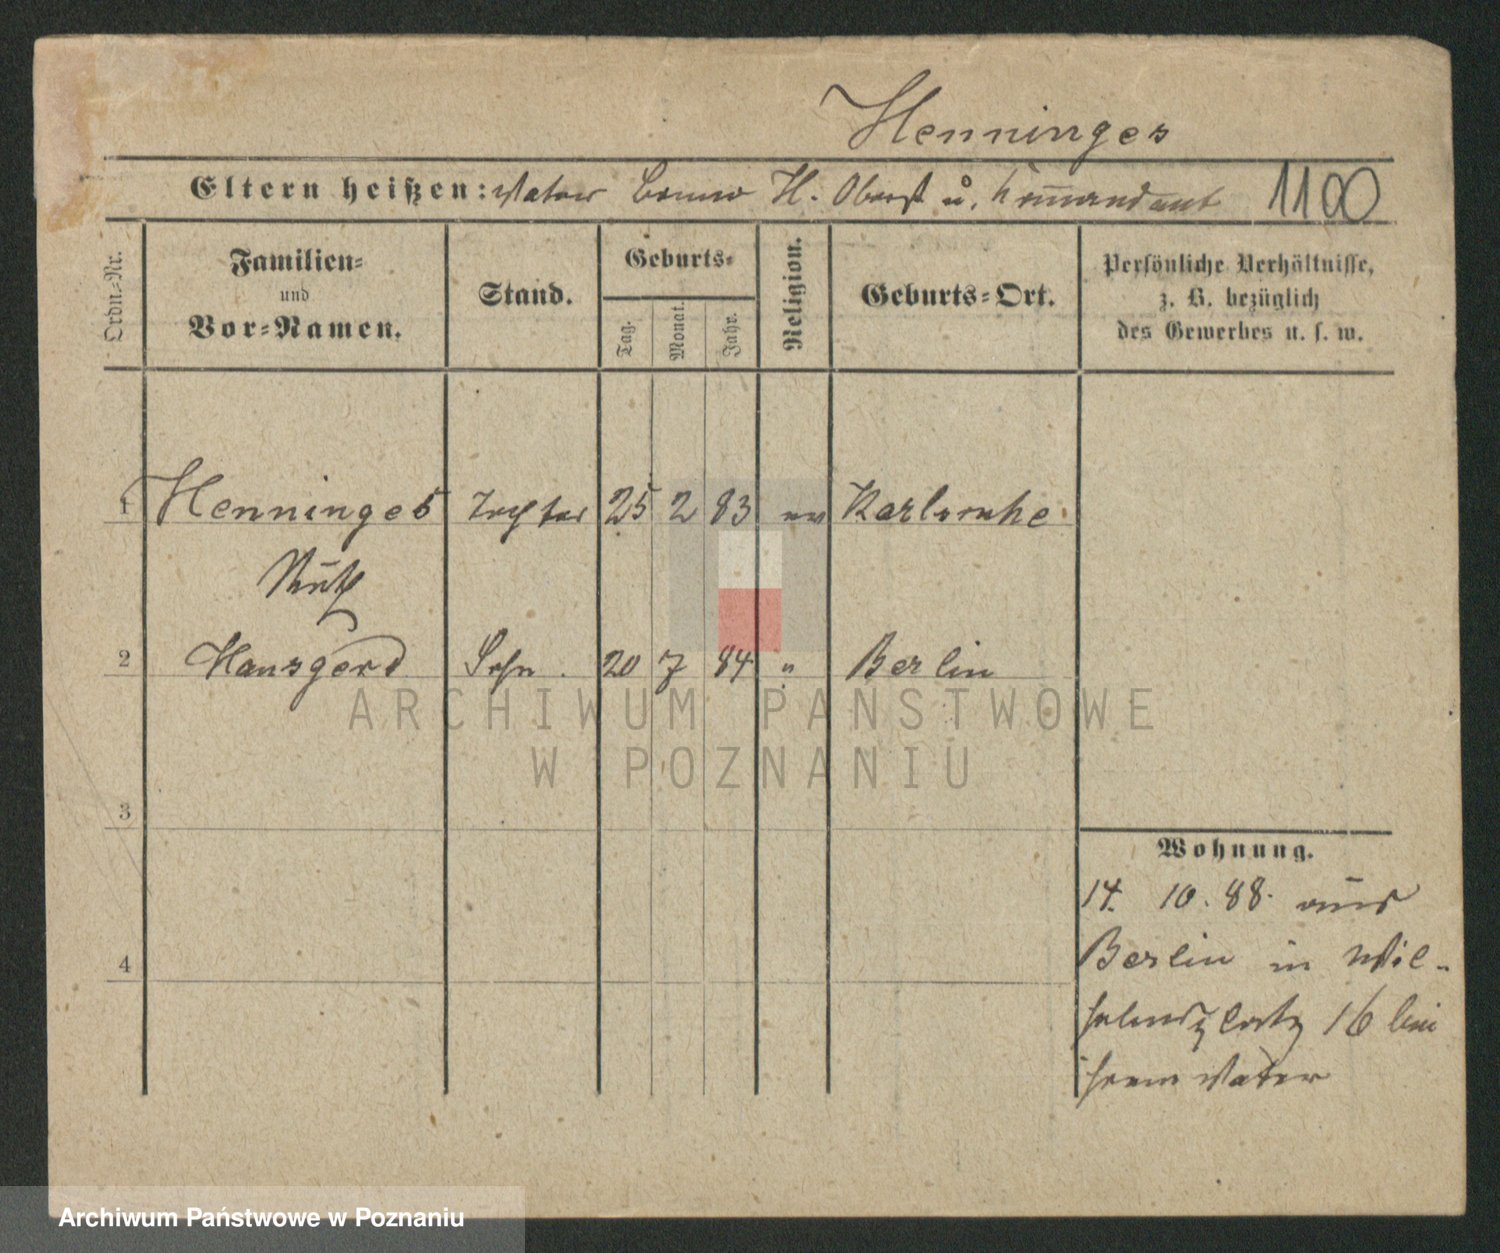 Henninges
Eltern heißen: Vater Benno H. Oberst u. Kommandant 1100
Ordn.-Nr.
Familien-
und
Vor-Namen.
Stand.
Geburts-
Tag.
Monat.
Jahr.
Religion.
Geburts-Ort.
Persönliche Verhältnisse,
z. B. bezüglich
des Gewerbes u. s. w.
1 Henninges Tochter 25 2 83 ev Karlsruhe
Ruth
2 Hansgerd Sohn. 20 7 84 " Berlin
3
4
Wohnung.
14. 10. 88. aus
Berlin in Wil-
helmsplatz 16 bei
ihrem Vater
ARCHIWUM PAŃSTWOWE
W POZNANIU
Archiwum Państwowe w Poznaniu